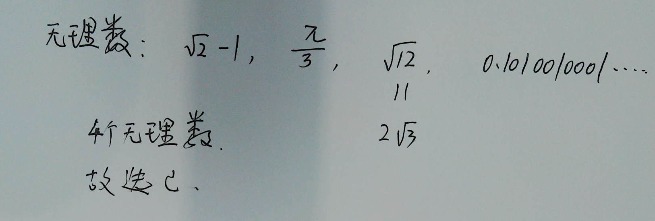 无理数: √2-1, π/3, √12, 0.1010010001....
11
4个无理数. 2√3
故选C.